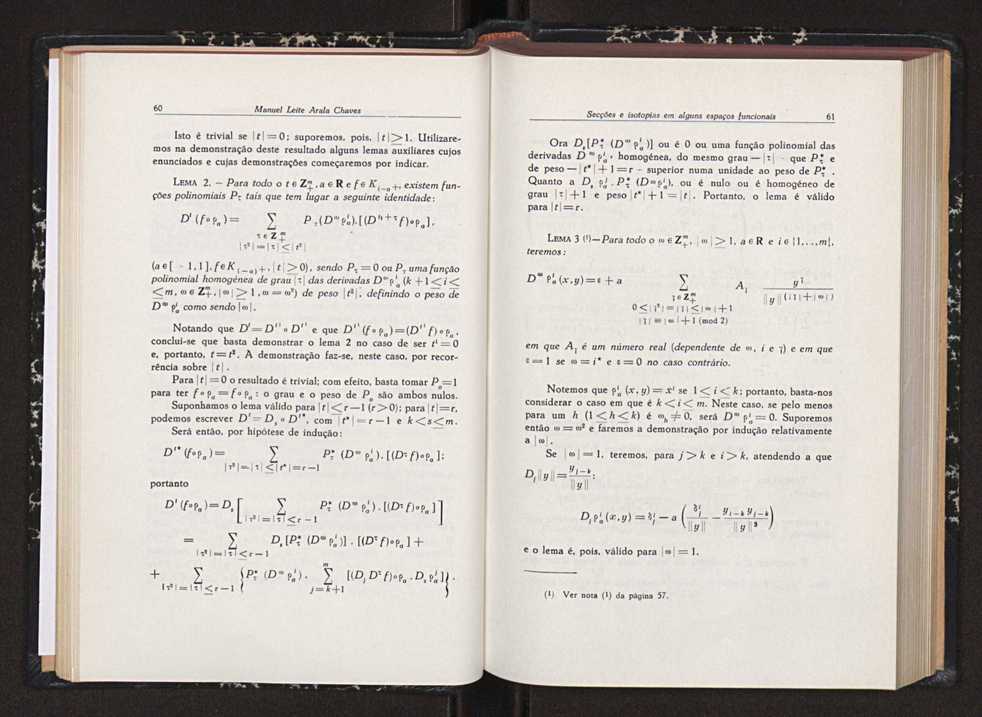 60 Manuel Leite Arala Chaves
Isto é trivial se |t| = 0; suporemos, pois, |t| ≥ 1. Utilizare-
mos na demonstração deste resultado alguns lemas auxiliares cujos
enunciados e cujas demonstrações começaremos por indicar.
LEMA 2. – Para todo o t ∈ Z₊ᵐ, a ∈ R e f ∈ K₍₋ₐ₎₊, existem fun-
ções polinomiais P_τ tais que tem lugar a seguinte identidade:
Dᵗ (f∘ρₐ) = ∑ P_τ (D^ω ρₐⁱ). [(D^{t¹+τ} f)∘ρₐ],
τ ∈ Z₊ᵐ
|τ²| = |τ| ≤ |t²|
(a ∈ [–1, 1], f ∈ K₍₋ₐ₎₊, |t| ≥ 0), sendo P_τ = 0 ou P_τ uma função
polinomial homogénea de grau |τ| das derivadas D^ω ρₐⁱ (k + 1 < i <
≤ m, ω ∈ Z₊ᵐ, |ω| ≥ 1, ω = ω²) de peso |t²|, definindo o peso de
D^ω ρₐⁱ como sendo |ω|.
Notando que Dᵗ = D^{t¹} ∘ D^{t²} e que D^{t¹} (f∘ρₐ) = (D^{t¹} f)∘ρₐ,
conclui-se que basta demonstrar o lema 2 no caso de ser t¹ = 0
e, portanto, t = t². A demonstração faz-se, neste caso, por recor-
rência sobre |t|.
Para |t| = 0 o resultado é trivial; com efeito, basta tomar P₀ = 1
para ter f∘ρₐ = f∘ρₐ: o grau e o peso de P₀ são ambos nulos.
Suponhamos o lema válido para |t| ≤ r – 1 (r > 0); para |t| = r,
podemos escrever Dᵗ = D_s ∘ D^{t*}, com |t*| = r – 1 e k < s ≤ m.
Será então, por hipótese de indução:
D^{t*} (f∘ρₐ) = ∑ P*_τ (D^ω ρₐⁱ). [(D^τ f)∘ρₐ];
|τ²| = |τ| ≤ |t*| = r – 1
portanto
Dᵗ (f∘ρₐ) = D_s [ ∑ P*_τ (D^ω ρₐⁱ). [(D^τ f)∘ρₐ] ]
|τ²| = |τ| ≤ r – 1
= ∑ D_s [P*_τ (D^ω ρₐⁱ)]. [(D^τ f)∘ρₐ] +
|τ²| = |τ| ≤ r – 1
+ ∑ { P*_τ (D^ω ρₐⁱ). ∑ [(D_j D^τ f)∘ρₐ . D_s ρₐʲ] }.
|τ²| = |τ| ≤ r – 1 m j = k + 1
Secções e isotopias em alguns espaços funcionais 61
Ora D_s [P*_τ (D^ω ρₐⁱ)] ou é 0 ou uma função polinomial das
derivadas D^ω ρₐⁱ, homogénea, do mesmo grau – |τ| – que P*_τ e
de peso – |t*| + 1 = r – superior numa unidade ao peso de P*_τ.
Quanto a D_s ρₐʲ . P*_τ (D^ω ρₐⁱ), ou é nulo ou é homogéneo de
grau |τ| + 1 e peso |t*| + 1 = |t|. Portanto, o lema é válido
para |t| = r.
LEMA 3 (¹) – Para todo o ω ∈ Z₊ᵐ, |ω| ≥ 1, a ∈ R e i ∈ {1,..,m},
teremos:
D^ω ρₐⁱ (x, y) = ε + a ∑ A_ȷ y^ȷ / ‖y‖^(|ȷ| + |ω|)
ȷ ∈ Z₊ᵐ
0 ≤ |ȷ²| = |ȷ| ≤ |ω| + 1
|ȷ| ≡ |ω| + 1 (mod 2)
em que A_ȷ é um número real (dependente de ω, i e ȷ) e em que
ε = 1 se ω = i* e ε = 0 no caso contrário.
Notemos que ρₐⁱ (x, y) = xⁱ se 1 ≤ i ≤ k; portanto, basta-nos
considerar o caso em que é k < i ≤ m. Neste caso, se pelo menos
para um h (1 ≤ h ≤ k) é ω_h ≠ 0, será D^ω ρₐⁱ = 0. Suporemos
então ω = ω² e faremos a demonstração por indução relativamente
a |ω|.
Se |ω| = 1, teremos, para j > k e i > k, atendendo a que
D_j ‖y‖ = y_{j–k} / ‖y‖:
D_j ρₐⁱ (x, y) = δⁱ_j – a ( δⁱ_j / ‖y‖ – y_{i–k} y_{j–k} / ‖y‖³ )
e o lema é, pois, válido para |ω| = 1.
(¹) Ver nota (¹) da página 57.